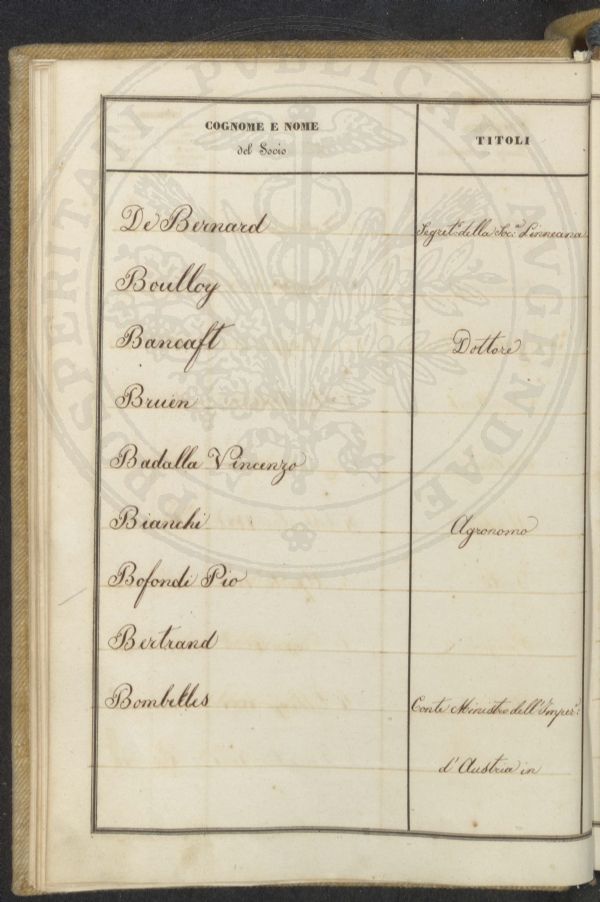 COGNOME E NOME
del Socio
TITOLI
De Bernard Segret.º della Soc.ª Linneana
Boulloy
Bancaft Dottore
Bruen
Badalla Vincenzo
Bianchi Agronomo
Bofondi Pio
Bertrand
Bombelles Conte Ministro dell'Imper.
d'Austria in
PROSPERITATI PUBLICAE AUGENDAE